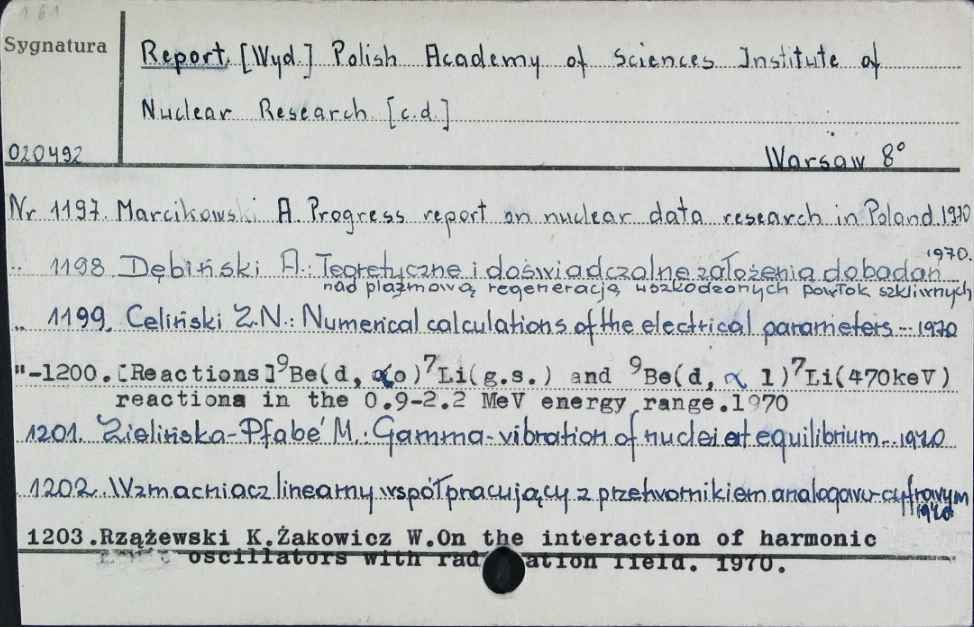 161
Sygnatura
Report. [Wyd.] Polish Academy of Sciences Institute of
Nuclear Research [c.d.]
020492
Warsaw 8°
Nr 1197. Marcikowski A. Progress report on nuclear data research in Poland. 1970
" 1198 Dębiński A.: Teoretyczne i doświadczalne założenia do badań 1970.
nad plazmową regeneracją uszkodzonych powłok szkliwnych
" 1199. Celiński Z.N.: Numerical calculations of the electrical parameters... 1970
"-1200.[Reactions]⁹Be(d, αo)⁷Li(g.s.) and ⁹Be(d, α 1)⁷Li(470keV)
reactions in the 0.9-2.2 MeV energy range.1970
1201. Zielińska-Pfabé M.: Gamma-vibration of nuclei at equilibrium... 1970
1202. Wzmacniacz linearny współpracujący z przetwornikiem analogowo-cyfrowym
1970
1203.Rzążewski K.Żakowicz W.On the interaction of harmonic
oscillators with radiation field. 1970.